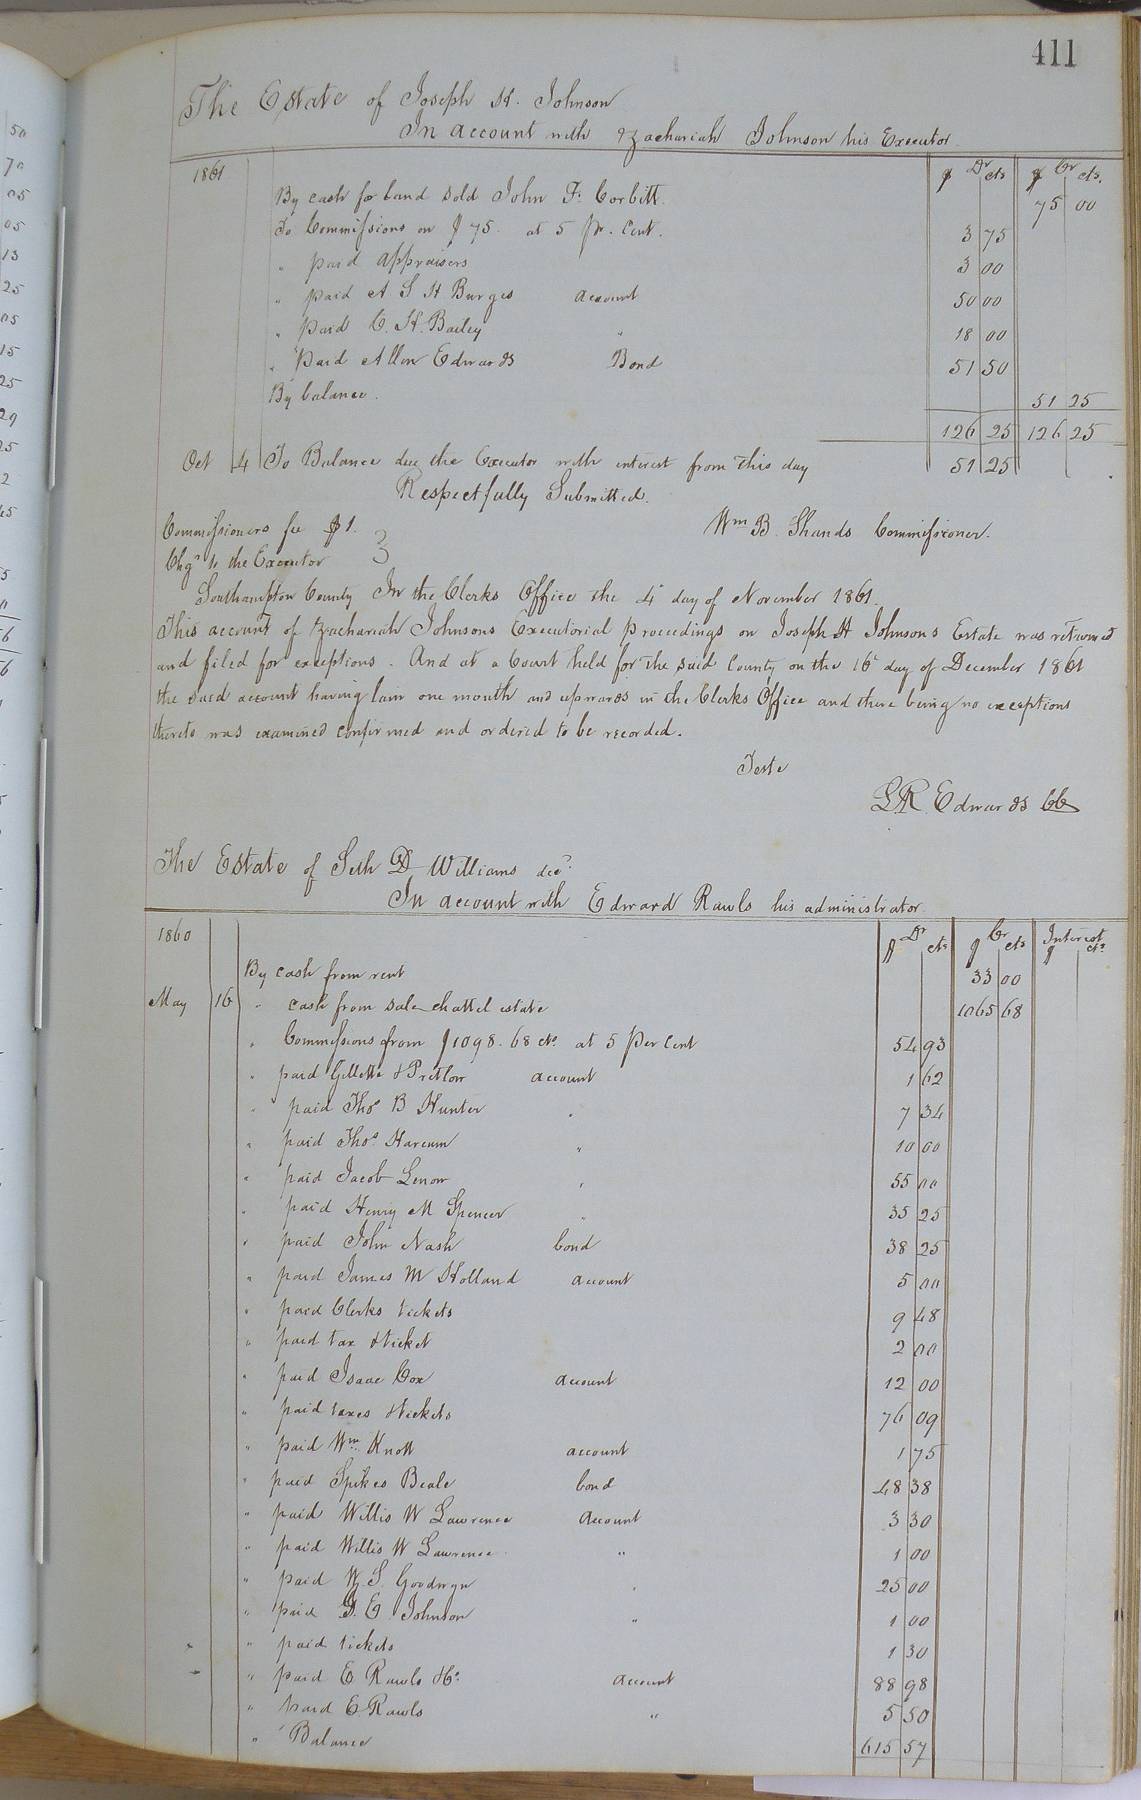 411
The Estate of Joseph H. Johnson
In account with Zachariah Johnson his Executor
1861 $ Dr cts $ Cr cts.
By cash for land sold John F. Corbitt. 75 00
To Commissions on $75. at 5 pr. Cent. 3 75
" paid Appraisers 3 00
" paid A S H Burges account 50 00
" paid C. H. Bailey " 18 00
" Paid Allen Edwards Bond 51 50
By balance. 51 25
126 25 126 25
Oct 4 To Balance due the Executor with interest from this day 51 25
Respectfully Submitted.
Commissioners fee $1. Wm B. Shands Commissioner.
Chgd to the Executor
Southampton County In the Clerks Office the 4th day of November 1861.
This account of Zachariah Johnsons Executorial proceedings on Joseph H Johnsons Estate was returned
and filed for exceptions. And at a Court held for the said County on the 16th day of December 1861
the said account having lain one month and upwards in the Clerks Office and there being no exceptions
thereto was examined confirmed and ordered to be recorded.
Teste
L R Edwards CC
The Estate of Seth D Williams decd.
In account with Edward Rawls his administrator
1860 $ Dr cts $ Cr cts Interest $ cts
By cash from rent 33 00
May 16 " cash from sale chattel estate 1065 68
" Commissions from $1098.68 cts at 5 per cent 54 93
" paid Gillette & Pretlow account 1 62
" paid Thos B Hunter " 7 34
" paid Thos. Harcum " 10 00
" paid Jacob Lenow " 55 00
" paid Henry M Spencer " 35 25
" paid John Nash bond 38 25
" paid James M Holland account 5 00
" paid Clerks tickets 9 48
" paid tax & ticket 2 00
" paid Isaac Cox account 12 00
" paid taxes & tickets 76 09
" paid Wm Knott account 1 75
" paid Spikes Beale bond 48 38
" paid Willis W Lawrence account 3 30
" paid Willis W Lawrence " 1 00
" paid W. S. Goodwyn " 25 00
" paid G. E Johnson " 1 00
" paid tickets 1 30
" paid E Rawls &c. account 88 98
" paid E. Rawls " 5 50
" Balance 615 57